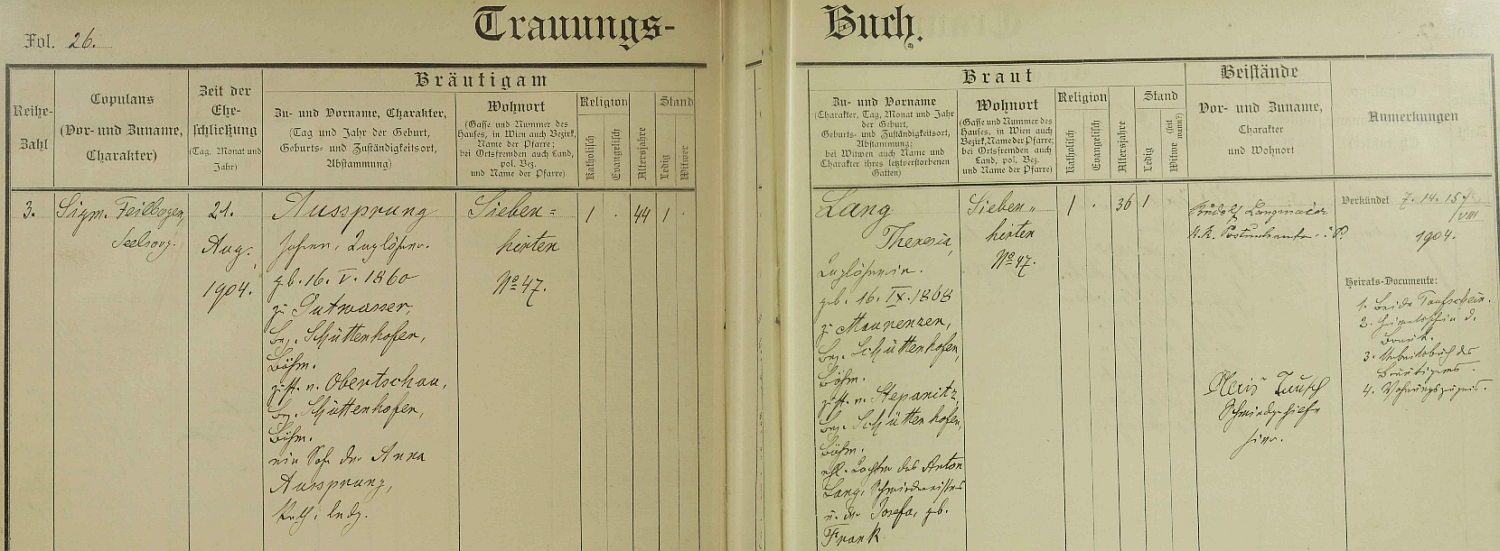 Trauungs-
Buch.
Fol. 26.
Reihe-
Zahl
Copulans
(Vor- und Zuname,
Charakter)
Zeit der
Ehe-
schließung
(Tag, Monat und
Jahr)
Bräutigam
Zu- und Vorname, Charakter,
(Tag und Jahr der Geburt,
Geburts- und Zuständigkeitsort,
Abstammung)
Wohnort
(Gasse und Nummer des
Hauses, in Wien auch Bezirk,
Name der Pfarre;
bei Ortsfremden auch Land,
pol. Bez.
und Name der Pfarre)
Religion
Katholisch
Evangelisch
Altersjahre
Stand
Ledig
Witwer
Braut
Zu- und Vorname
(Charakter, Tag, Monat und Jahr
der Geburt,
Geburts- und Zuständigkeitsort,
Abstammung;
bei Witwen auch Name und
Charakter ihres letztverstorbenen
Gatten)
Wohnort
(Gasse und Nummer des
Hauses, in Wien auch
Bezirk, Name der Pfarre;
bei Ortsfremden auch
Land, pol. Bez.
und Name der Pfarre)
Religion
Katholisch
Evangelisch
Altersjahre
Stand
Ledig
Witwe (seit wann?)
Beistände
Vor- und Zuname,
Charakter
und Wohnort
Anmerkungen
3.
Sigm. Feilbogen,
Seelsorg.
21.
Aug.
1904.
Aussprung
Johann, Taglöhner.
gb. 16. V. 1860
zu Gutwasser,
bez. Schüttenhofen,
Böhm.
zust. n. Obertschau,
bz. Schüttenhofen,
Böhm.
ein Sohn der Anna
Aussprung,
kath., ledg.
Sieben=
hirten
No 47.
1 . 44 1 .
Lang
Theresia,
Taglöhnerin.
geb. 16. IX. 1868
z. Maurenzen,
bez. Schüttenhofen,
Böhm.
zust. n. Stepanitz,
bez. Schüttenhofen,
Böhm.
ehl. Tochter des Anton
Lang, Schmiedmeisters
u. der Josefa, gb.
Frank
Sieben=
hirten
No 47.
1 . 36 1
Rudolf
k.k. i. P.
Alois Tausch
Schmiedgehilfe
hier.
Verkündet 7. 14. 15./
VIII
1904.
Heirats-Documente:
1. beide Taufschein.
2. d.
Braut.
3. Arbeitsbuch des
Bräutigams.
4. Wohnungszeugnis.